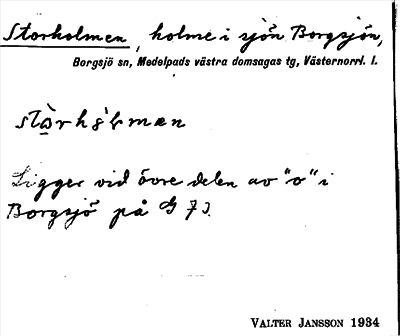 Storholmen, holme i sjön Borgsjön,
Borgsjö sn, Medelpads västra domsagas tg, Västernorrl. l.
Ligger vid övre delen av "o" i
Borgsjö på G 7 J.
VALTER JANSSON 1934